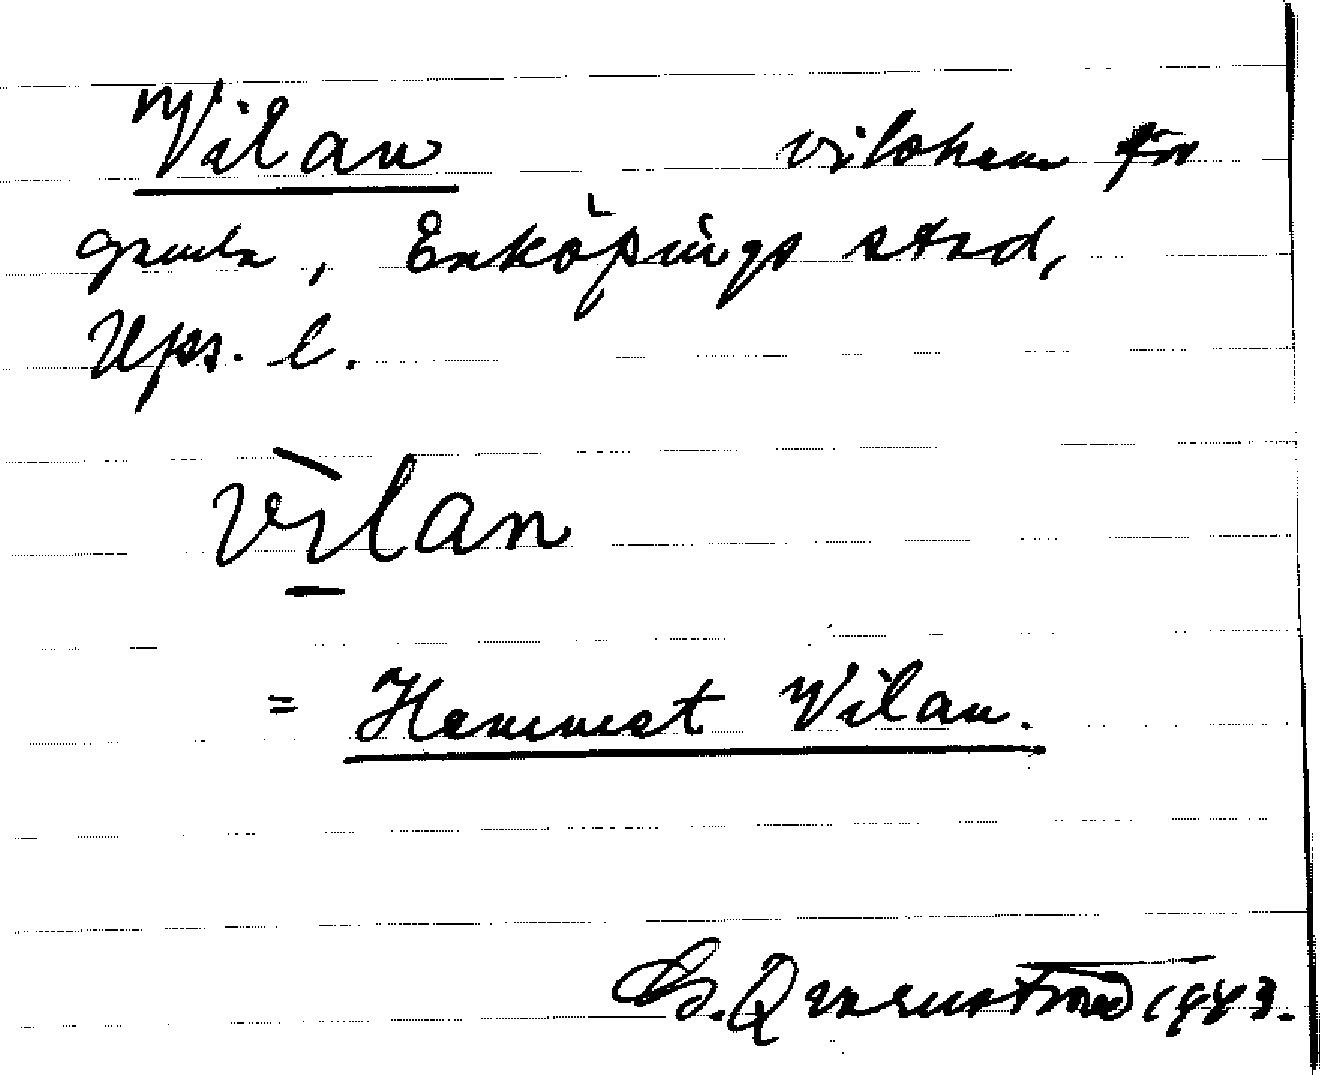 Vilan vilohem för
gamla, Enköpings stad,
Ups. l.
vìlan
= Hemmet Vilan.
G. Qvarnström 1943.